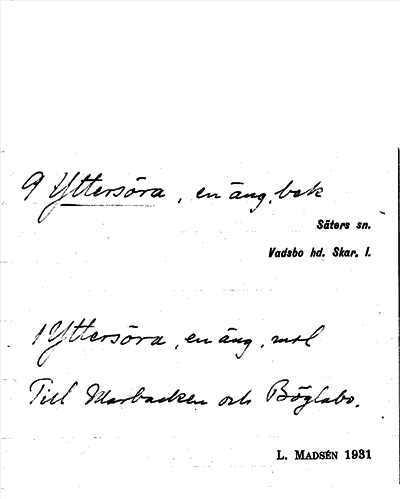 9 Yttersöra, en äng, bek
Säters sn.
Vadsbo hd. Skar. l.
1 Yttersöra, en äng, mol
Till Marbacken och Böglabo.
L. MADSÉN 1931